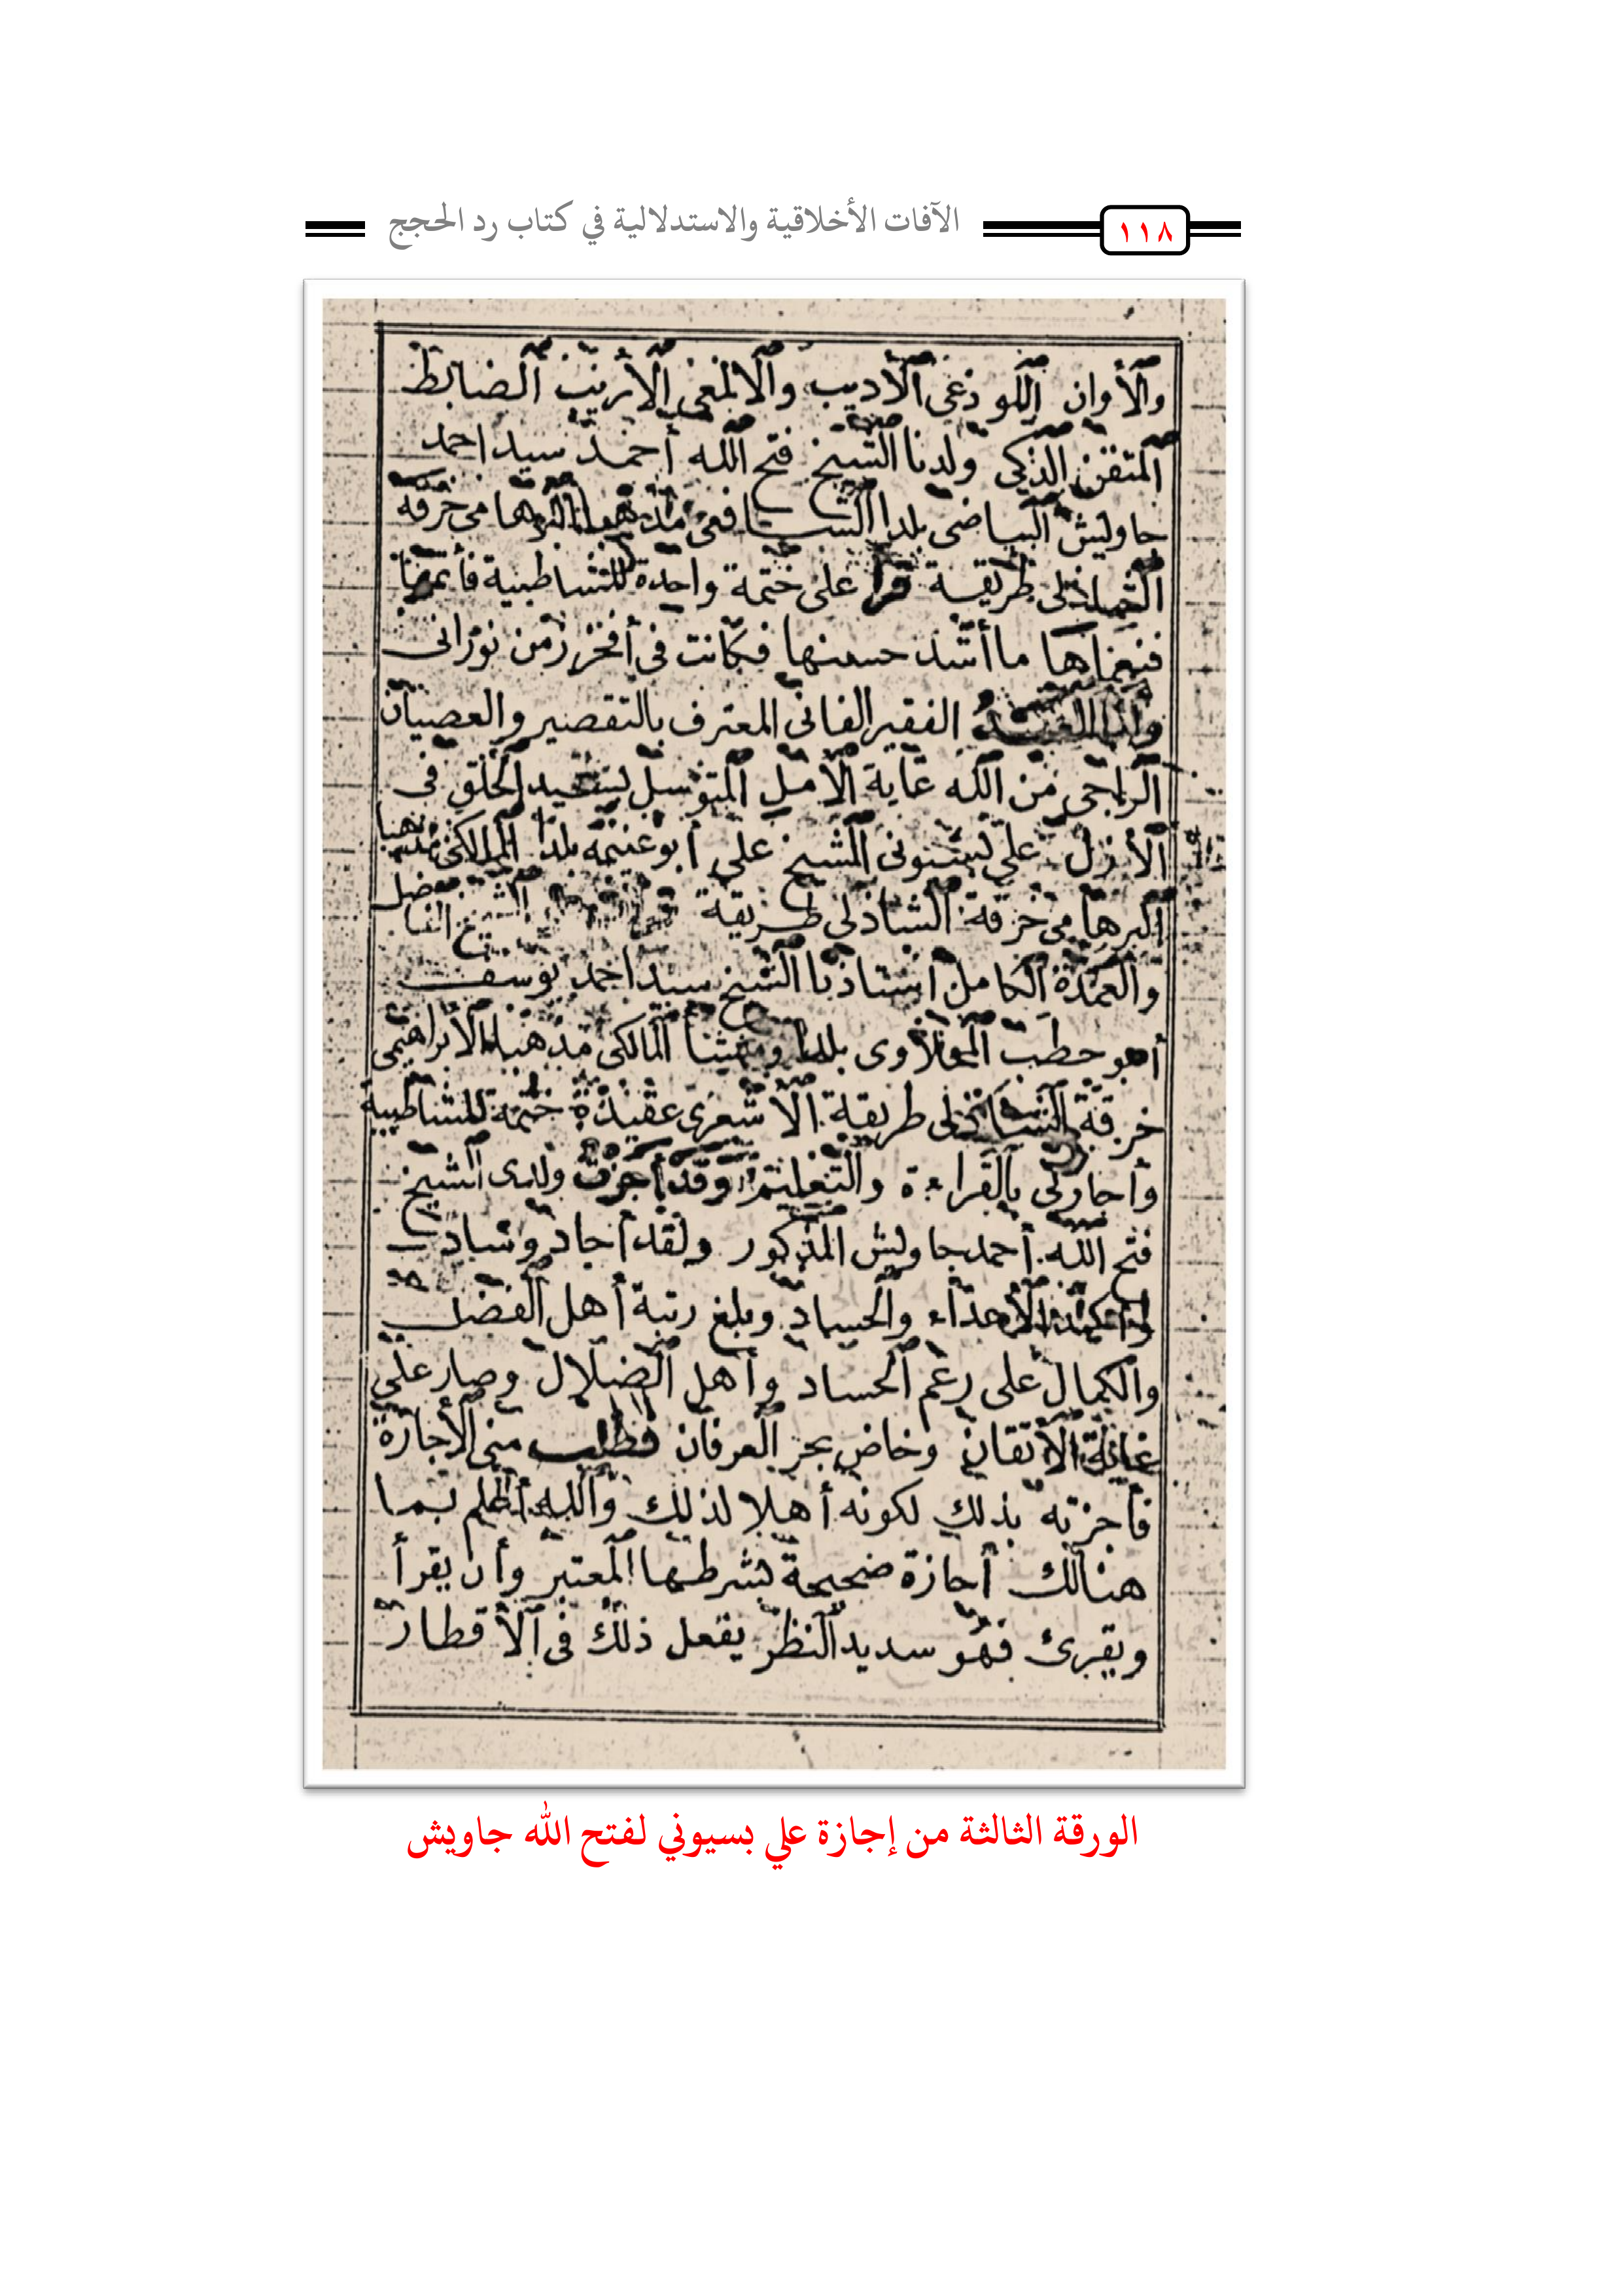 ١١٨
الآفات الأخلاقية والاستدلالية في كتاب رد الحجج
والأوان اللوذعي الأديب والالمعي الأريب الضابط
المتقن الذكي ولدنا الشيخ فتح الله أحمد سيد احمد
جاويش البياضى بلدا الشافعى مذهبا خرقة
الشاذلى طريقة قرأ على ختمة واحدة للشاطبية فأتمها
فنعماها ما أشد حسنها فكانت فى أفخر زمن نورانى
وأنا الفقير الفانى المعترف بالتقصير والعصيان
الراجى من الله غاية الأمل المتوسل بسيد الخلق فى
الأزل على بسيونى الشيخ على أبو بلدا المالكى مذهبا
خرقة الشاذلى طريقة
والعمدة الكامل أستاذنا الشيخ سيد احمد يوسف
أهو حطب بلدا المالكى مذهبا الأبراهيمى
خرقة الشاذلى طريقة الأشعرى عقيدة ختمة للشاطبية
وأجازنى بالقراءة والتعليم وقد أجزت ولدى الشيخ
فتح الله أحمد جاويش المذكور ولقد أجاد وساد
الأعداء والحساد وبلغ رتبة أهل الفضل
والكمال على رغم الحساد وأهل الضلال وصار على
غاية الأتقان وخاض بحر العرفان فطلب منى الأجازة
فأجزته بذلك لكونه أهلا لذلك والله أعلم بما
هنالك أجازة صحيحة بشرطها المعتبر وأن يقرأ
ويقرئ فهو سديد النظر يفعل ذلك فى الأقطار
الورقة الثالثة من إجازة علي بسيوني لفتح الله جاويش